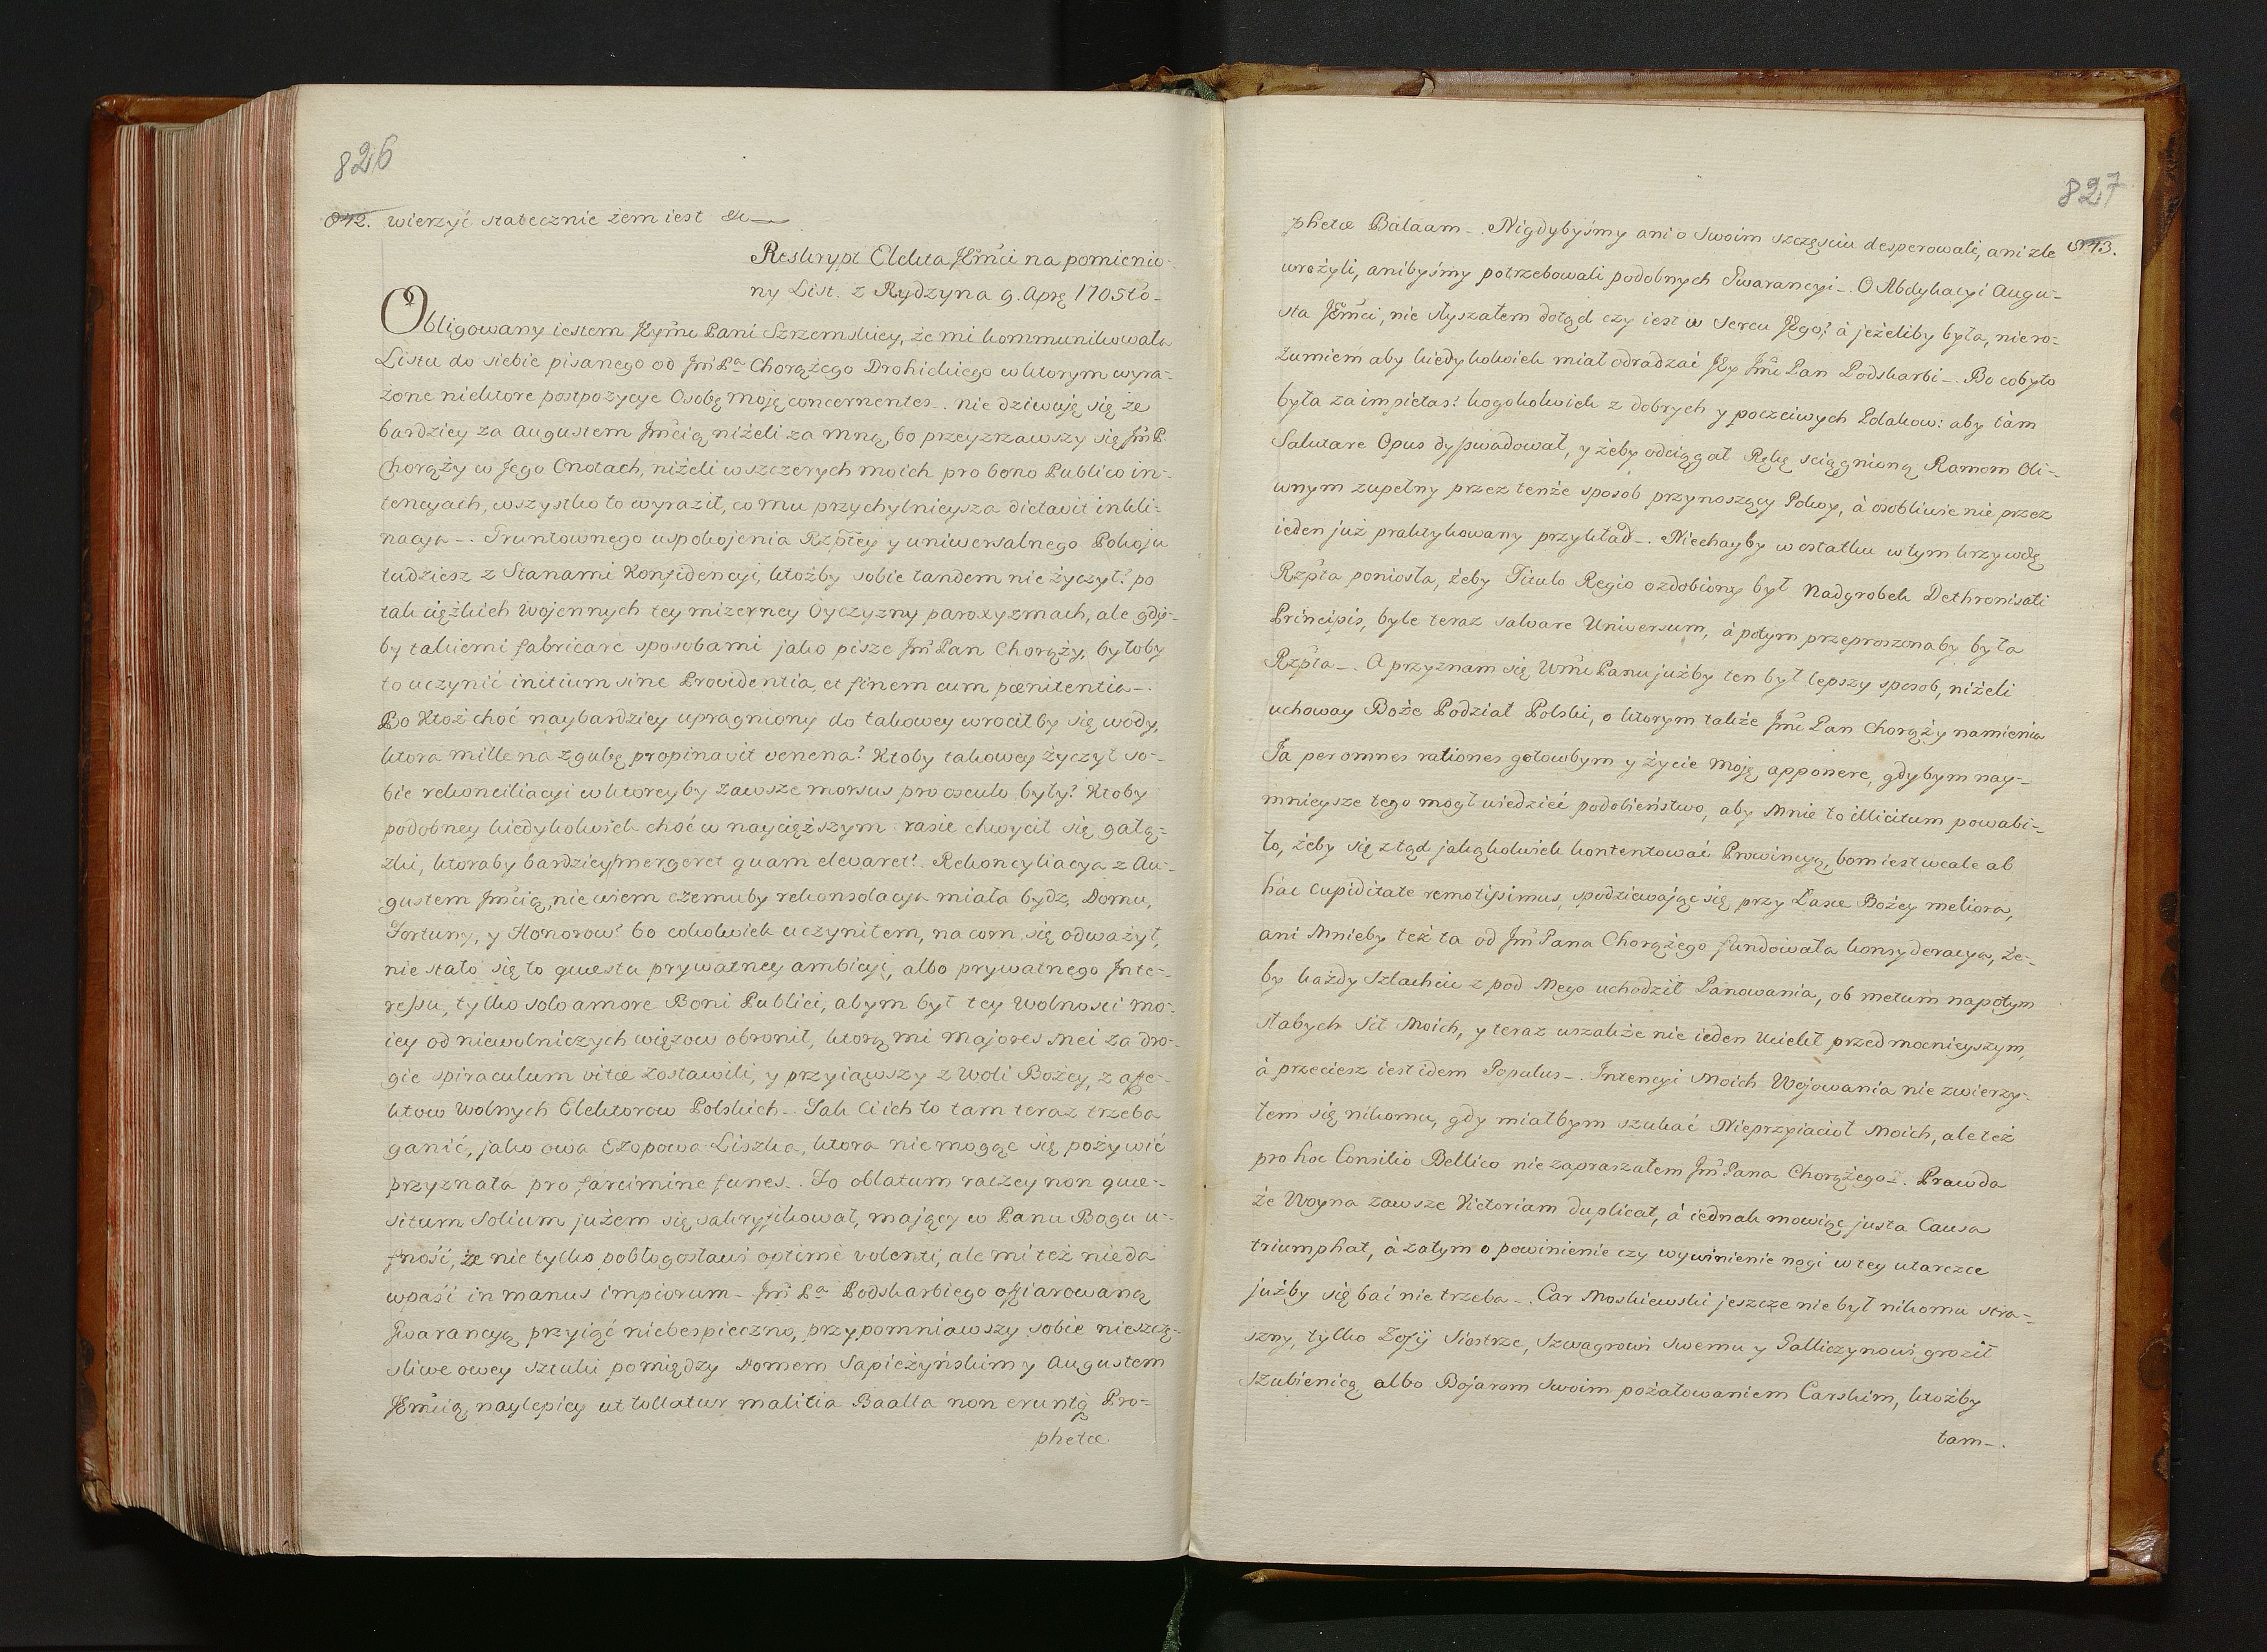 826
842. wierzyć statecznie żem iest &c
Reskrypt Elekta JEmci na pomienio-
ny List. z Rydzyna 9. Apr. 1705to.
Obligowany iestem JEymci Pani Szremskiey, że mi kommunikowała
Listu do siebie pisanego od Jmć Pa Chorążego Drohickiego w ktorym wyra-
żone niektore postpozycye Osobę moję concernentes. nie dziwuję się że
bardziey za Augustem Jmcią niżeli za mną, bo przeyzrzawszy się Jmć P.
Chorąży w Jego Cnotach, niżeli w szczerych moich pro bono Publico in-
tencyach, wszystko to wyraził, co mu przychylnieysza dictavit inkli-
nacya. Gruntownego uspokojenia Rzpltey y uniwersalnego Pokoju
tudziesz z Stanami Konfidencyi, ktożby sobie tandem nie życzył? po
tak ciężkich Wojennych tey mizerney Oyczyzny paroxyzmach, ale gdy-
by takiemi fabricare sposobami jako pisze Jmć Pan Chorąży, byłoby
to uczynić initium sine Providentia, et finem cum pœnitentia.
Bo Ktoż choć naybardziey upragniony do takowey wrocił by się wody,
ktora mille na zgubę propinavit venena? Ktoby takowey życzył so-
bie rekonciliacyi w ktorey by zawsze morsus pro osculo były? Ktoby
podobney kiedykolwiek choć w naycięższym razie chwycił się gałą-
zki, ktoraby bardziey mergeret quam elevaret? Rekoncyliacya z Au-
gustem Jmcią, nie wiem czemuby rekonsolacya miała bydz, Domu,
Fortuny, y Honorow? bo cokolwiek uczyniłem, na com się odważył,
nie stało się to quæstu prywatney ambicyi, albo prywatnego Inte-
ressu, tylko solo amore Boni Publici, abym był tey Wolnosci mo-
iey od niewolniczych więzow obronił, ktorą mi Majores mei za dro-
gie spiraculum vitæ zostawili, y przyiąwszy z Woli Bożey, z afe-
ktow Wolnych Elektorow Polskich. Jak ci ich to tam teraz trzeba
ganić, jako owa Ezopowa Liszka, ktora nie mogąc się pożywić
przyznała pro farcimine funes. To oblatum raczey non quæ-
situm Solium jużem się sakryfikował, mający w Panu Bogu u-
fność, że nie tylko pobłogosławi optimè volenti, ale mi też nie da
wpaść in manus impiorum. Jmć Pa Podskarbiego ofiarowaną
Gwarancyą przyiąć niebespieczno, przypomniawszy sobie nieszczę-
śliwe owey sztuki pomiędzy Domem Sapieżyńskim y Augustem
JEmcią, naylepiey ut tollatur malitia Baalla non erunt Pro-
phetæ
827
843.
phetæ Balaam. Nigdybyśmy ani o swoim szczęściu desperowali, ani źle
wrożyli, anibyśmy potrzebowali podobnych Gwarancyi. O Abdykacyi Augu-
sta JEmci, nie słyszałem dotąd czy iest w Sercu JEgo? à jeżeliby była, niero-
zumiem aby kiedykolwiek miał odradzać JEy Jmć Pan Podskarbi. Bo co by to
była za impietas? kogokolwiek z dobrych y poczciwych Polakow: aby tàm
Salutare Opus dysswadował, y żeby odciągał Rękę sciągnioną Ramom Oli-
wnym zupełny przez tenże sposob przynoszący Pokoy, à osobliwie nie przez
ieden już praktykowany przykład. Niechayby w ostatku w tym krzywdę
Rzplta poniosła, żeby Titulo Regio ozdobiony był Nadgrobek Dethronisati
Principis, byle teraz salvare Universum, à potym przeproszona by była
Rzplta. A przyznam się Wmć Panu jużby ten był lepszy sposob, niżeli
uchoway Boże Podział Polski, o ktorym także Jmć Pan Chorąży namienia
Ja per omnes rationes gotowbym y życie moję apponere, gdybym nay-
mnieysze tego mogł wiedzieć podobieństwo, aby mnie to illicitum powabi-
ło, żeby się ztąd jakąkolwiek kontentować Prowincyą, bom iest wcale ab
hac cupiditate remotissimus, spodziewając się przy Łasce Bożey meliora,
ani Mnieby też ta od Jmć Pana Chorążego fundowała konsyderacya, że-
by każdy Szlachcic z pod Mego uchodził Panowania, ob metum napotym
słabych Sił Moich, y teraz wszakże nie ieden Uciekł przed mocnieyszym,
à przeciesz iest idem Populus. Intencyi Moich Wojowania nie zwierzy-
łem się nikomu, gdy miałbym szukać Nieprzyiacioł Moich, ale też
pro hoc Consilio Bellico nie zapraszałem Jmć Pana Chorążego. Prawda
że Woyna zawsze Victoriam duplicat, à iednak mowią justa Causa
triumphat, à zatym o powinienie czy wywinienie nogi w tey utarczce
jużby się bać nie trzeba. Car Moskiewski jeszcze nie był nikomu stra-
szny, tylko Zofij Siostrze, Szwagrowi swemu y Galliczynowi groził
szubienicą albo Bojarom swoim pożałowaniem Carskim, ktożby
tam.